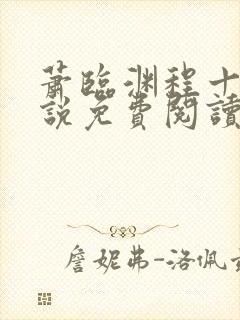 蕭臨渊程十
說免費閱讀
詹妮弗-洛佩兹